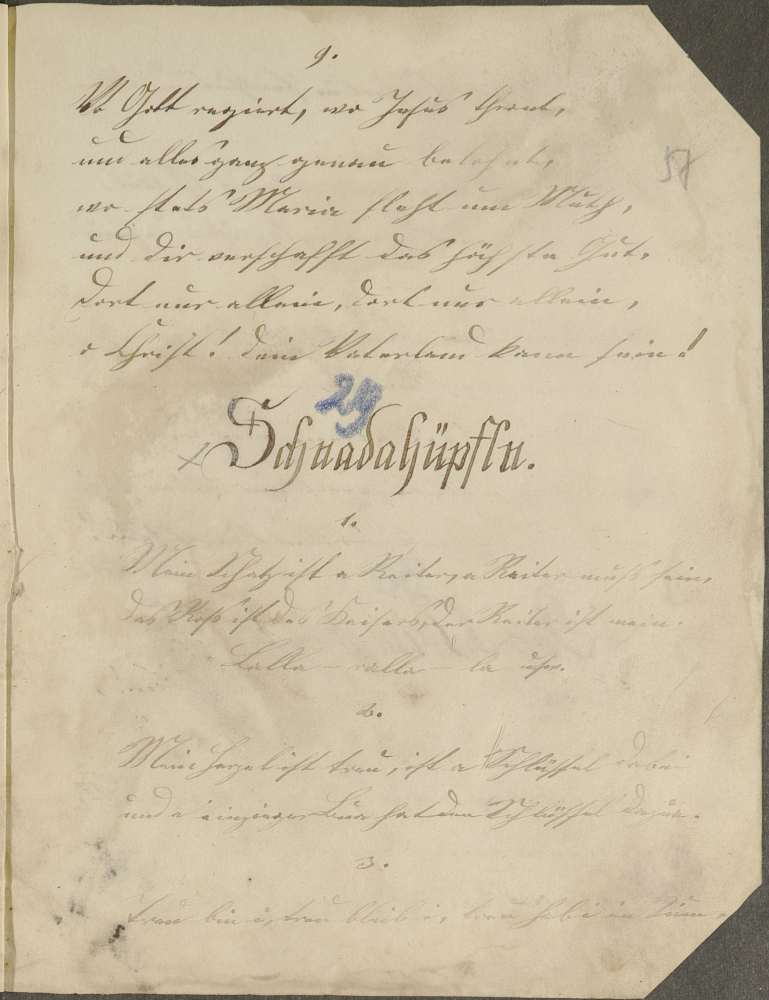 9.
Wo Gott regiert, wo Jesus thront,
und alles ganz genau belohnt,
wo stets Maria fleht um Muth,
und dir verschafft das höchste Gut,
dort nur allein, dort nur allein,
o Christ! dein Vaterland kann sein!
29
Schnadahüpfln.
1.
Mein Schatz ist a Reiter, a Reiter muß sein,
das Roß ist des Kaisers, der Reiter ist mein.
Lalla – ralla – la usw.
2.
Mein Herzel ist treu, ist a Schlüssel dabei
und a einziger Bua hat den Schlüssel dazua.
3.
Treu bin i, treu bleib i, treu hab i im Sinn,